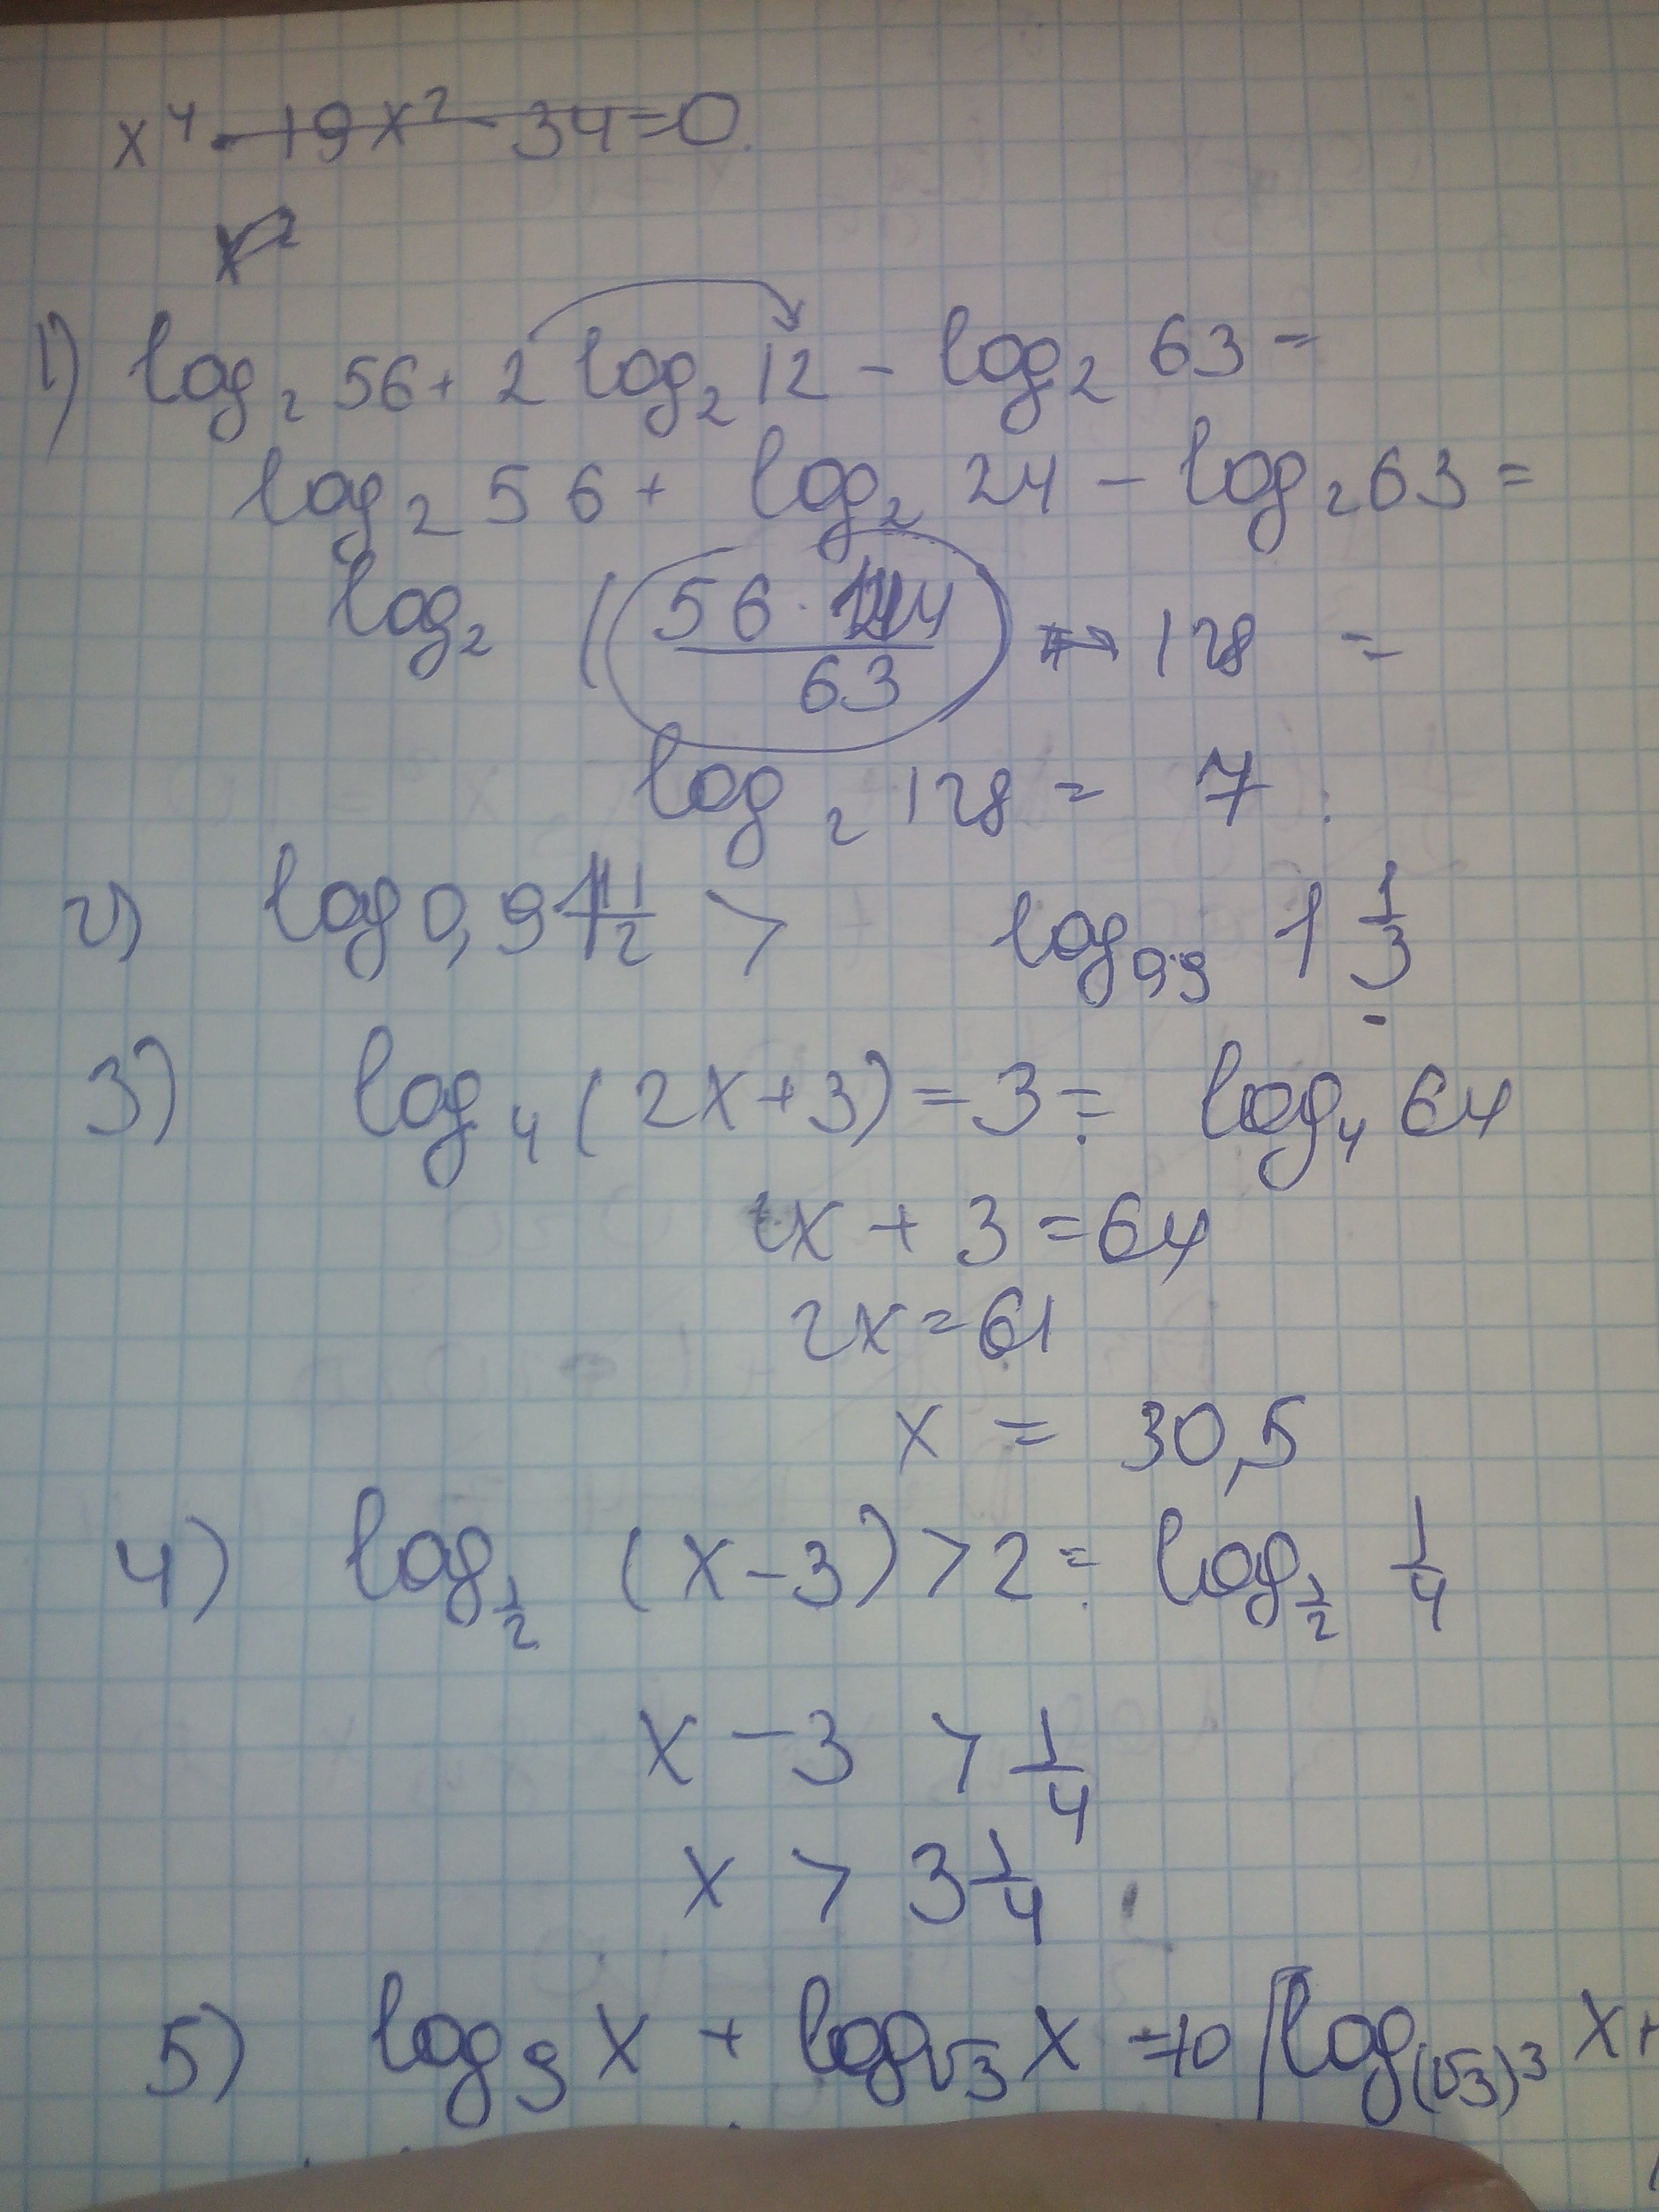 x⁴ - 19x² - 34 = 0.
x²
1) log₂ 56 + 2 log₂ 12 - log₂ 63 =
log₂ 56 + log₂ 24 - log₂ 63 =
log₂ (56 · 144 / 63) ↔ 128 =
log₂ 128 = 7.
2) log 0,9 1 1/2 > log₀,₉ 1 1/3
3) log₄ (2x + 3) = 3 = log₄ 64
2x + 3 = 64
2x = 61
x = 30,5
4) log_1/2 (x - 3) > 2 = log_1/2 1/4
x - 3 > 1/4
x > 3 1/4
5) log₉ x + log_√3 x = 10 log_(√3)³ x +